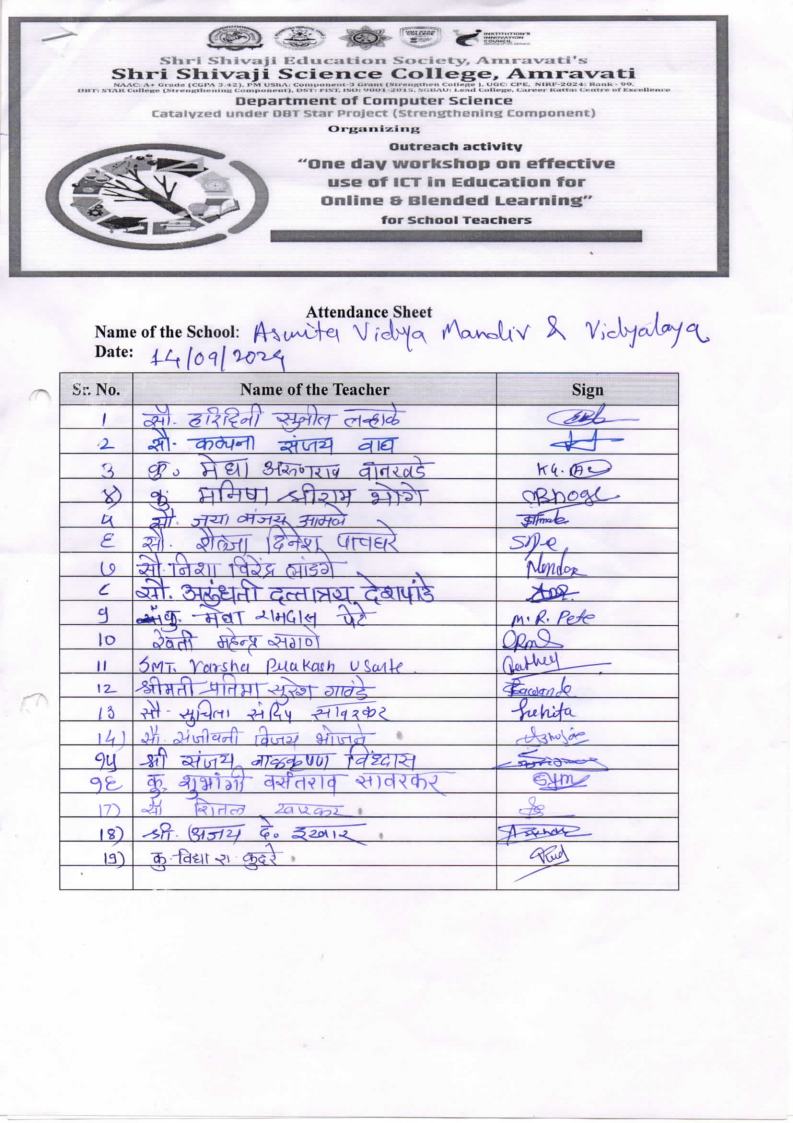 INSTITUTION'S
INNOVATION
COUNCIL
Shri Shivaji Education Society, Amravati's
Shri Shivaji Science College, Amravati
NAAC: A+ Grade (CGPA 3.42), PM USHA: Component-3 Grant (Strengthen College), UGC: CPE, NIRF-2024: Rank - 99,
DBT: STAR College (Strengthening Component), DST: FIST, ISO: 9001-2015, SGBAU: Lead College, Career Katta: Centre of Excellence
Department of Computer Science
Catalyzed under DBT Star Project (Strengthening Component)
Organizing
Outreach activity
"One day workshop on effective
use of ICT in Education for
Online & Blended Learning"
for School Teachers
Attendance Sheet
Name of the School: Asmita Vidya Mandir & Vidyalaya
Date: 14/09/2024
Sr. No. Name of the Teacher Sign
1 सौ. हरिदिनी सुनील लव्हाळे
2 सौ. कल्पना संजय वाघ
3 कु. मेघा अरुणराव वानखडे
४) कु. मनिषा श्रीराम भोगे Bhoge
५ सौ. जया संजय आमले
६ सौ. शैलजा दिनेश पाचघरे
७ सौ. निशा विरेंद्र लांडगे
८ सौ. अरुंधती दत्तात्रय देशपांडे
9 कु. मेघा रामदास पेटे M. R. Pete
10 रेवती महेन्द्र सगणे
11 SMT. Varsha Prakash
12 श्रीमती प्रतिमा सुरेश गावंडे Gawande
13 सौ. सुचिता संदिप सावरकर Suchita
14) सौ. संजीवनी विजय भोजने
१५ श्री संजय बाळकृष्ण विंचदास
१६ कु. शुभांगी वसंतराव सावरकर
17) सौ शितल खारकर
18) श्री. अजय दे. इखार
19) कु. विद्या रा. कुदरे